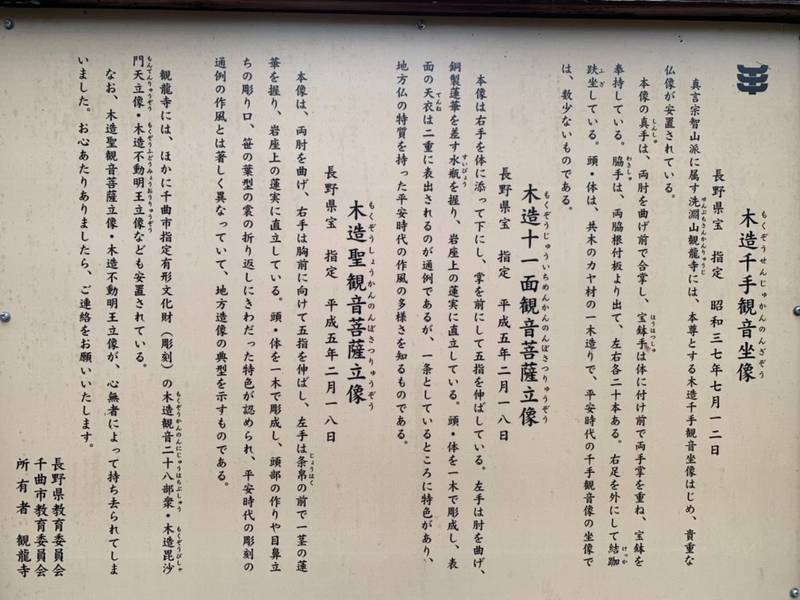 木造千手観音坐像
もくぞうせんじゅかんのんざぞう
長野県宝　指定　昭和三七年七月一二日
真言宗智山派に属す洗淵山観龍寺には、本尊とする木造千手観音坐像はじめ、貴重な
せんぶちさんかんりゅうじ
仏像が安置されている。
本像の真手は、両肘を曲げ前で合掌し、宝鉢手は体に付け前で両手掌を重ね、宝鉢を
しんしゅ　ほうはつしゅ
奉持している。脇手は、両脇根付板より出て、左右各二十本ある。右足を外にして結跏
わきしゅ　けっか
趺坐している。頭・体は、共木のカヤ材の一木造りで、平安時代の千手観音像の坐像で
ふざ
は、数少ないものである。
木造十一面観音菩薩立像
もくぞうじゅういちめんかんのんぼさつりゅうぞう
長野県宝　指定　平成五年二月一八日
本像は右手を体に添って下にし、掌を前にして五指を伸ばしている。左手は肘を曲げ、
銅製蓮華を差す水瓶を握り、岩座上の蓮実に直立している。頭・体を一木で彫成し、表
すいびょう
面の天衣は二重に表出されるのが通例であるが、一条としているところに特色があり、
てんね
地方仏の特質を持った平安時代の作風の多様さを知るものである。
木造聖観音菩薩立像
もくぞうしょうかんのんぼさつりゅうぞう
長野県宝　指定　平成五年二月一八日
本像は、両肘を曲げ、右手は胸前に向けて五指を伸ばし、左手は条帛の前で一茎の蓮
じょうはく
華を握り、岩座上の蓮実に直立している。頭・体を一木で彫成し、頭部の作りや目鼻立
ちの彫り口、笹の葉型の裳の折り返しにきわだった特色が認められ、平安時代の彫刻の
通例の作風とは著しく異なっていて、地方造像の典型を示すものである。
観龍寺には、ほかに千曲市指定有形文化財（彫刻）の木造観音二十八部衆・木造毘沙
もくぞうかんのんにじゅうはちぶしゅう　もくぞうびしゃ
門天立像・木造不動明王立像なども安置されている。
もんてんりゅうぞう　もくぞうふどうみょうおうりゅうぞう
なお、木造聖観音菩薩立像・木造不動明王立像が、心無者によって持ち去られてしま
いました。お心あたりありましたら、ご連絡をお願いいたします。
長野県教育委員会
千曲市教育委員会
所有者　観龍寺